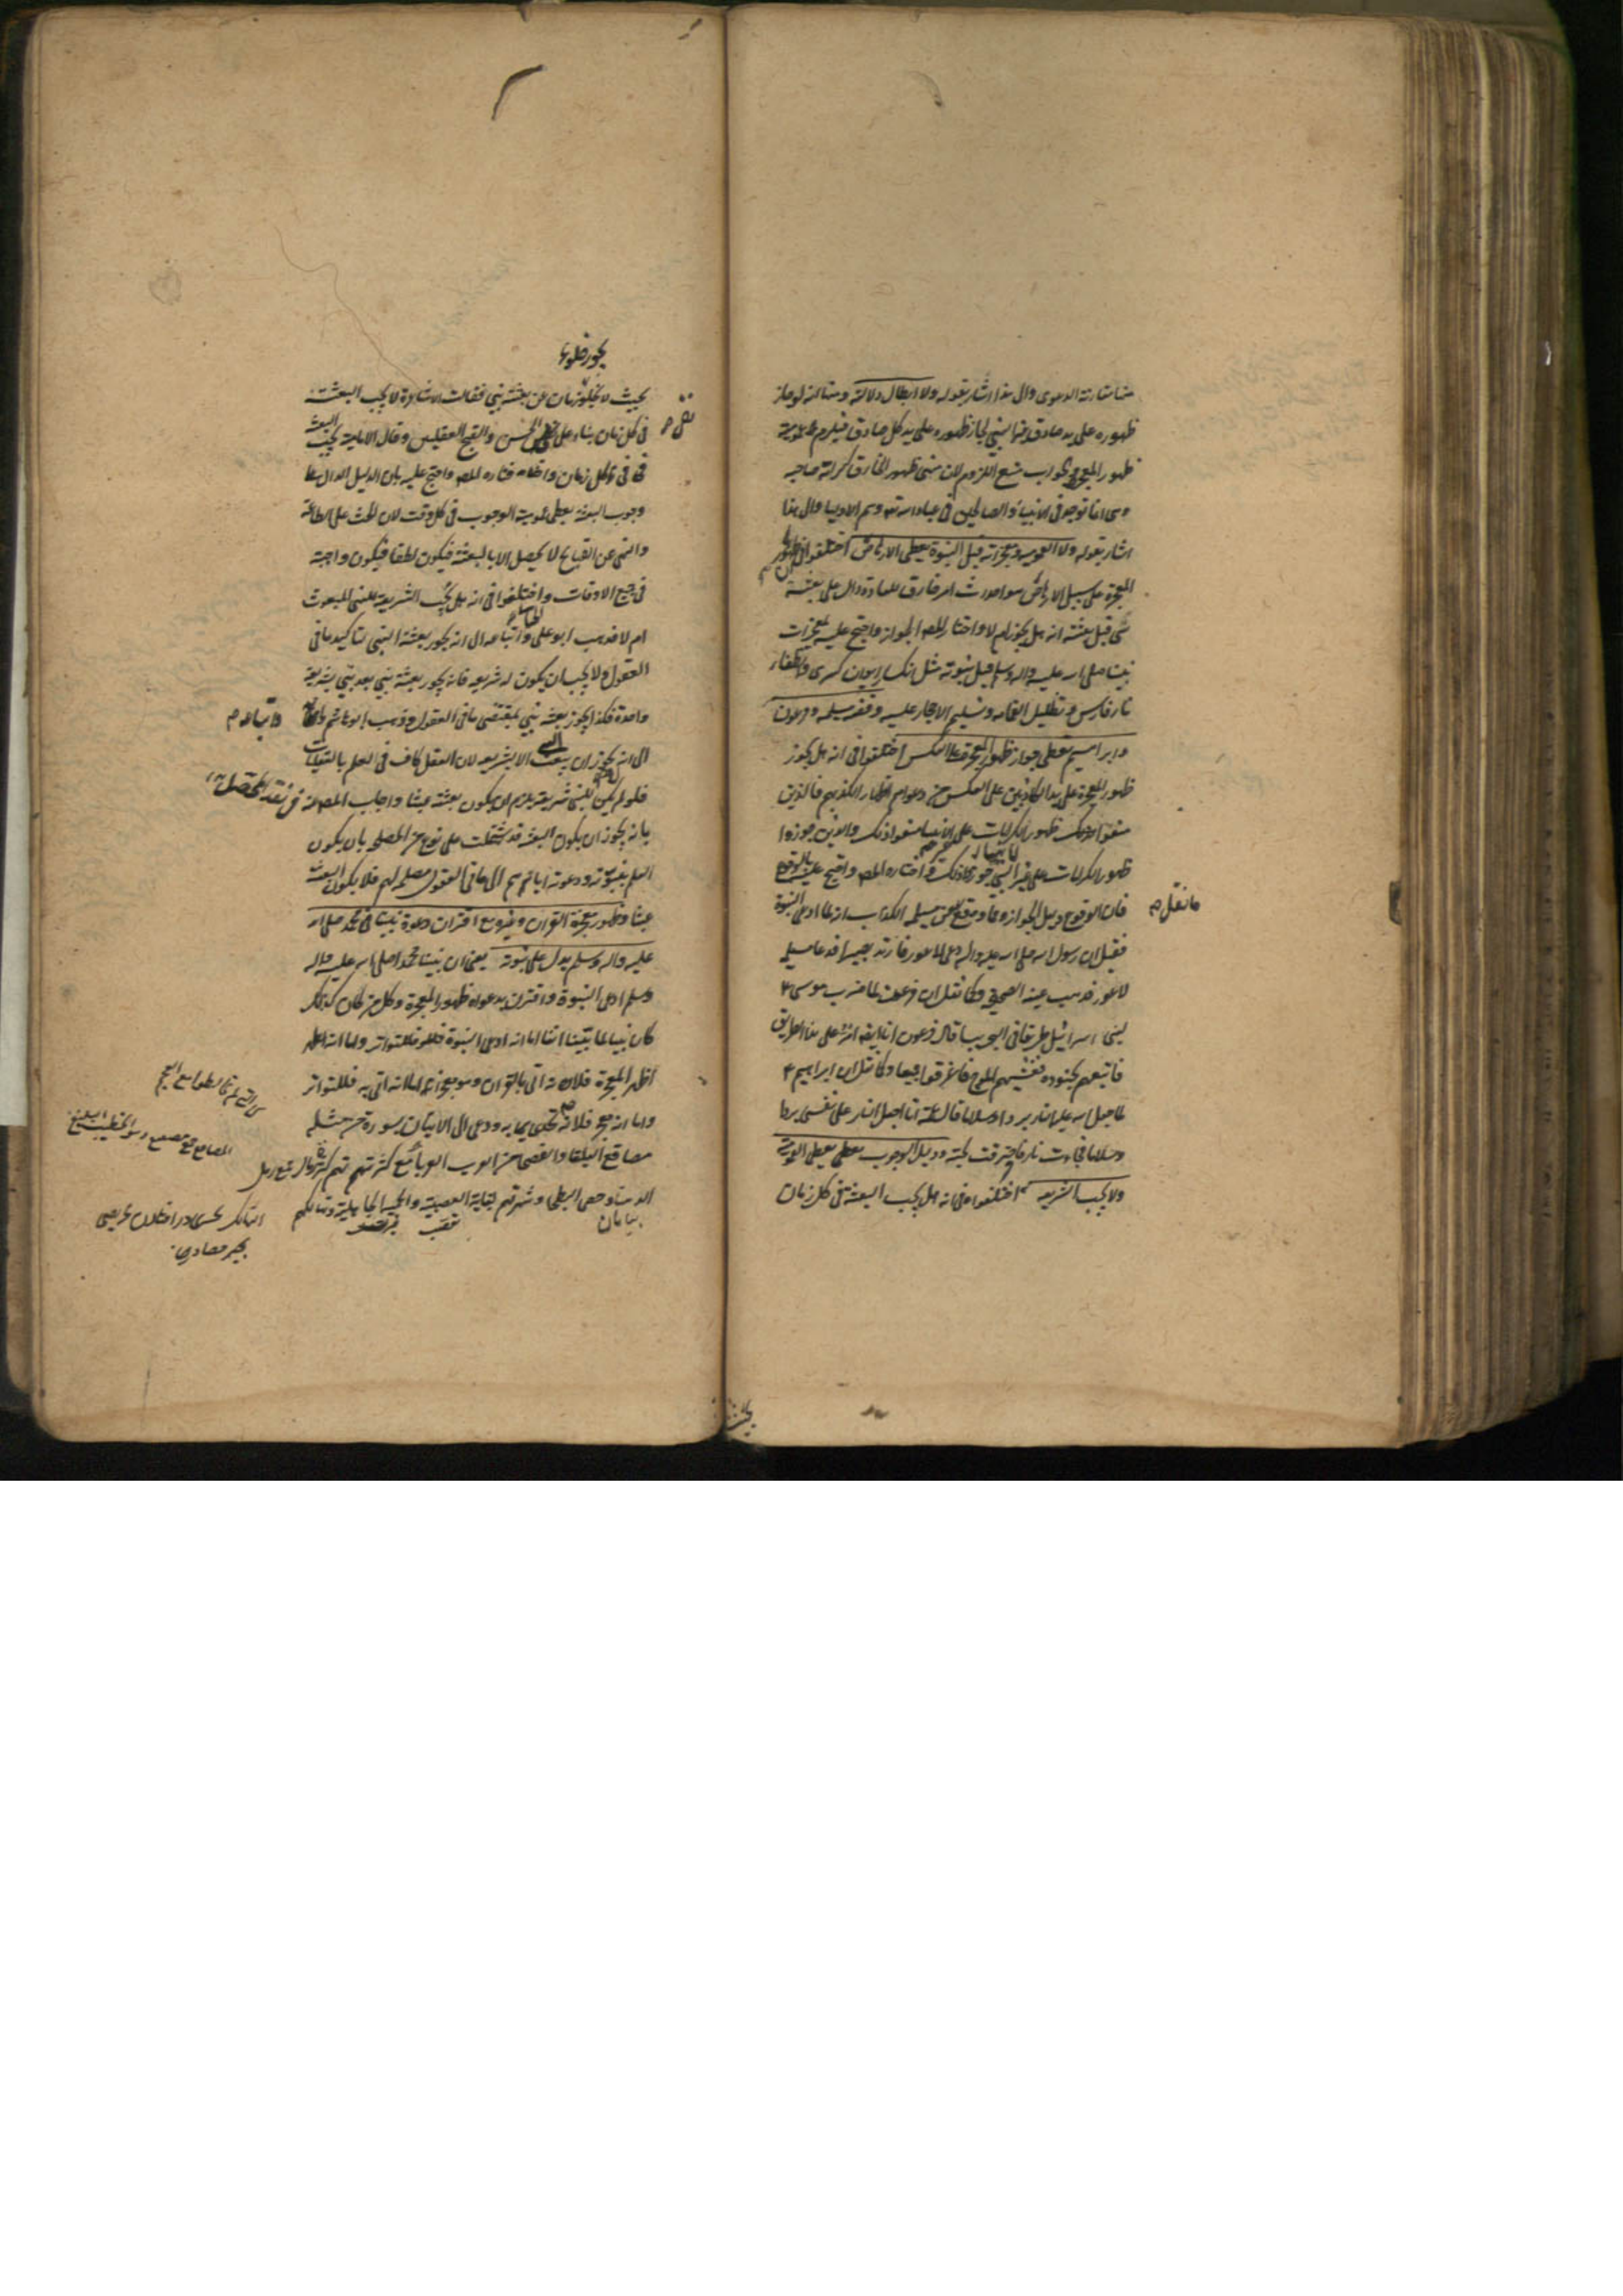 مقارنة الدعوى والى هذا اشار بقوله ولا ابطال دلالته ومنها انه لو جاز
ظهوره على يد صادق غير النبي لجاز ظهوره على يد كل صادق فيلزم عمومية
ظهور المعجزة والجواب منع اللزوم لان مبنى ظهور الخارق كرامة صاحبه
وهي انما توجد في الانبياء والصالحين في عباد الله تعالى وهم الاولياء والى هذا
اشار بقوله ولا العمومية ومعجزاته قبل النبوة يعطي الارهاص اختلفوا في ظهور
المعجزة على سبيل الارهاص هو احداث امر خارق للعادة دال على بعثة
نبي قبل بعثته انه هل يجوز ام لا واختار المص الجواز واحتج عليه بمعجزات
نبينا صلى الله عليه واله وسلم قبل نبوته مثل انكسار ايوان كسرى وانطفاء
نار فارس وتظليل الغمامة وتسليم الاحجار عليه وقصة مسيلمة وفرعون
وابراهيم يعطي جواز ظهور المعجزة على العكس اختلفوا في انه هل يجوز
ظهور المعجزة على يد الكاذبين على العكس من دعواهم اظهارا لكذبهم فالذين
منعوا ظهور الكرامات على الاولياء منعوا ذلك والذين جوزوا
ظهور الكرامات على غير النبي جوزوا ذلك واختاره المص واحتج عليه بالوقوع
فان الوقوع دليل الجواز وقد وقع عن مسيلمة الكذاب انه لما ادعى النبوة
ما نقل م
فقيل ان رسول الله صلى الله عليه واله دعى لاعور فارتد بصيرا فدعا مسيلمة
لاعور فذهب عينه الصحيحة وكما نقل ان فرعون لما ضرب موسى ع
لبني اسرائيل طريقا في البحر يبسا قال فرعون انا ايضا امر على هذا الطريق
فاتبعهم بجنوده فغشيهم الموج فاغرقوا جميعا وكما نقل ان ابراهيم ع
لما جعل الله عليه النار بردا وسلاما قال عمه انا اجعل النار على نفسي بردا
وسلاما فجاءت نار فاحترقت لحيته ودليل الوجوب يعطي العمومية
ولا يجب الشريعة اختلفوا في انه هل يجب البعثة في كل زمان
بحيث
يجوز خلوها
بحيث لا يخلو زمان عن بعثة نبي فقالت الاشاعرة لا يجب البعثة
في كل زمان بناء على نفي الحسن والقبح العقليين وقال الامامية يجب البعثة
نفي م
في كل زمان واختاره المص واحتج عليه بان الدليل الدال على
وجوب البعثة يعطي عمومية الوجوب في كل وقت لان الحث على الطاعة
والنهي عن القبايح لا يحصل الا بالبعثة فيكون لطفا فيكون واجبة
في جميع الاوقات واختلفوا في انه هل يجب الشريعة للنبي المبعوث
ام لا فذهب ابو علي واتباعه الى انه يجوز بعثة النبي لتاكيد ما في
العقول ولا يجب ان يكون له شريعة فانه يجوز بعثة نبي بعد نبي بشريعة
واحدة فكذا يجوز بعثة نبي بمقتضى ما في العقول وذهب ابو هاشم
واتباعه م
الى انه لا يجوز ان يبعث الا بشريعة لان العقل كاف في العلم بالعقليات
فلو لم يكن للنبي شريعة يلزم ان يكون بعثته عبثا واجاب المص عنه في نقد المحصل
بانه يجوز ان يكون البعثة قد اشتملت على نوع من المصلحة بان يكون
العلم بنبوته ودعوته اياهم الى ما في العقول مصلحة لهم فلا يكون البعثة
عبثا وظهور معجزة القران وغيره مع اقتران دعوة نبينا محمد صلى الله
عليه واله وسلم يدل على نبوته يعني ان نبينا محمدا صلى الله عليه واله
وسلم ادعى النبوة واقترن بدعواه ظهور المعجزة وكل من كان كذلك
كان نبيا لما بينا اما انه ادعى النبوة فللتواتر واما انه اظهر
المعجزة فلانه اتى بالقران وهو معجز اما انه اتى به فللتواتر
واما انه معجز فلانه تحدى به ودعى الى الاتيان بسورة من مثله
مصاقع البلغاء والفصحاء من العرب العرباء مع كثرتهم كثرة رمال
الدهناء وحصى البطحاء وشهرتهم بغاية العصبية والحمية الجاهلية وتهالكهم
بيابان
تعصب
المصاقع جمع مصقع وهو الخطيب البليغ